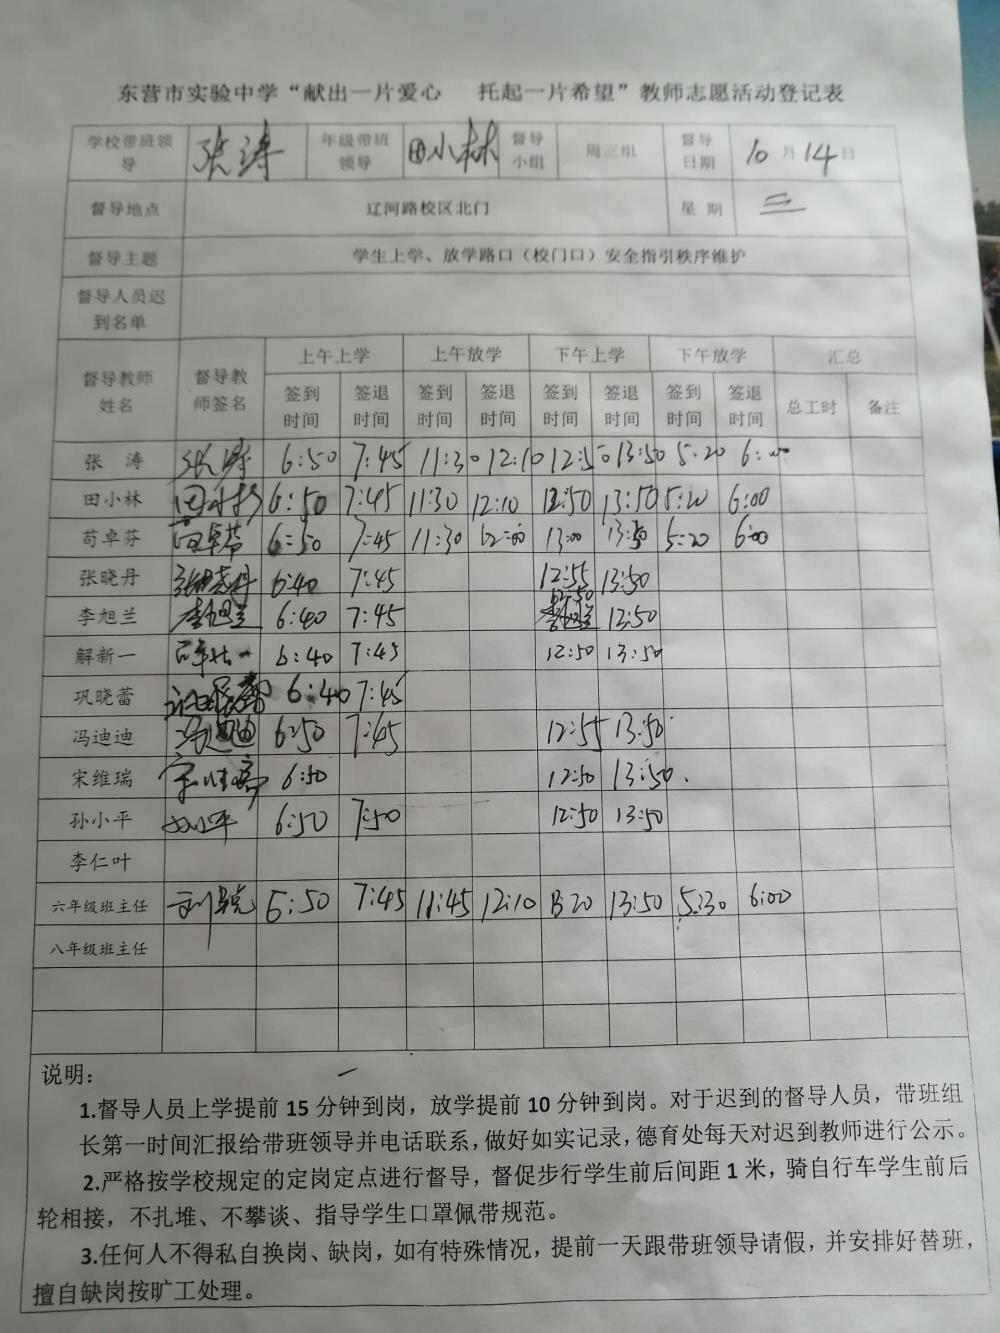 东营市实验中学“献出一片爱心 托起一片希望”教师志愿活动登记表
学校带班领导 张涛 年级带班领导 田小林 督导小组 周三组 督导日期 10月14日
督导地点 辽河路校区北门 星 期 三
督导主题 学生上学、放学路口（校门口）安全指引秩序维护
督导人员迟到名单
督导教师姓名 督导教师签名 上午上学 上午放学 下午上学 下午放学 汇总
签到时间 签退时间 签到时间 签退时间 签到时间 签退时间 签到时间 签退时间 总工时 备注
张 涛 张涛 6:50 7:45 11:30 12:10 12:50 13:50 5:20 6:00
田小林 田小林 6:50 7:45 11:30 12:10 12:50 13:50 5:20 6:00
苟卓芬 苟卓芬 6:50 7:45 11:30 12:00 13:00 13:50 5:20 6:00
张晓丹 张晓丹 6:40 7:45 12:55 13:50
李旭兰 李旭兰 6:40 7:45 12:50 李旭兰 12:50
解新一 解新一 6:40 7:45 12:50 13:50
巩晓蕾 6:40 7:45
冯迪迪 冯迪迪 6:50 7:45 12:55 13:50
宋维瑞 宋维瑞 6:50 12:50 13:50.
孙小平 孙小平 6:50 7:50 12:50 13:50
李仁叶
六年级班主任 6:50 7:45 11:45 12:10 13 20 13:50 5:30 6:00
八年级班主任
说明：
1.督导人员上学提前 15 分钟到岗，放学提前 10 分钟到岗。对于迟到的督导人员，带班组
长第一时间汇报给带班领导并电话联系，做好如实记录，德育处每天对迟到教师进行公示。
2.严格按学校规定的定岗定点进行督导，督促步行学生前后间距 1 米，骑自行车学生前后
轮相接，不扎堆、不攀谈、指导学生口罩佩带规范。
3.任何人不得私自换岗、缺岗，如有特殊情况，提前一天跟带班领导请假，并安排好替班，
擅自缺岗按旷工处理。